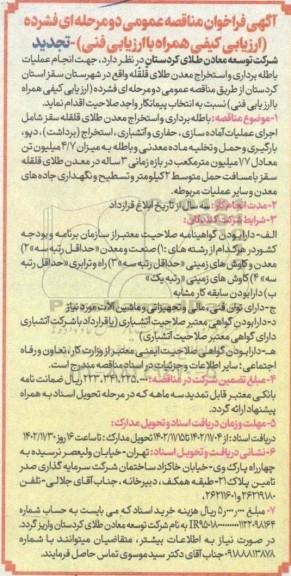 آگهی فراخوان مناقصه عمومی دو مرحله ای فشرده
(ارزیابی کیفی همراه با ارزیابی فنی) -تجدید
شرکت توسعه معادن طلای کردستان در نظر دارد، جهت انجام عملیات
باطله برداری و استخراج معدن طلای قلقله واقع در شهرستان سقز استان
کردستان از طریق مناقصه عمومی دو مرحله ای فشرده (ارزیابی کیفی همراه
با ارزیابی فنی) نسبت به انتخاب پیمانکار واجد صلاحیت اقدام نماید.
۱-موضوع مناقصه: باطله برداری و استخراج معدن طلای قلقله سقز شامل
اجرای عملیات آماده سازی، حفاری و آتشباری، استخراج (برداشت)، دپو،
بارگیری و حمل و تخلیه ماده معدنی و باطله به میزان ۴/۷ میلیون تن
معادل ۱/۷۷ میلیون مترمکعب در بازه زمانی ۳ ساله در معدن طلای قلقله
سقز با مسافت حمل متوسط ۲ کیلومتر و تسطیح و نگهداری جاده های
معدن و سایر عملیات مربوطه.
۲-مدت انجام کار: سه سال از تاریخ ابلاغ قرارداد
۳-شرایط شرکت کنندگان:
الف-دارا بودن گواهینامه صلاحیت معتبر از سازمان برنامه و بودجه
کشور در هر کدام از رشته های: ۱) صنعت و معدن «حداقل رتبه سه» ۲)
معدن و کاوش های زمینی «حداقل رتبه سه» ۳) راه و ترابری «حداقل رتبه
سه» ۴) کاوش های زمینی «رتبه یک»
ب) دارا بودن سابقه کار مشابه
ج-دارای توان فنی، مالی و تجهیزاتی و ماشین آلات مورد نیاز
د-دارا بودن گواهی معتبر صلاحیت آتشباری (یا قرارداد با شرکت آتشباری
دارای گواهی معتبر صلاحیت آتشباری)
هـ-دارا بودن گواهی صلاحیت ایمنی معتبر از وزارت کار، تعاون و رفاه
اجتماعی؛ سایر اطلاعات و جزئیات در اسناد مناقصه مندرج است.
۴-مبلغ تضمین شرکت در مناقصه: ریال ضمانت نامه
بانکی معتبر قابل تمدید سه ماهه که در مرحله تحویل اسناد به همراه
پیشنهاد ارائه گردد.
۵-مهلت و زمان دریافت اسناد و تحویل مدارک:
دریافت اسناد: از ۱۴۰۲/۱۱/۰۴ تا ۱۴۰۲/۱۱/۱۵ تحویل مدارک: تا ساعت ۱۶ روز ۱۴۰۲/۱۱/۳۰
۶-نشانی دریافت و تحویل اسناد: تهران-خیابان ولیعصر نرسیده به
چهارراه پارک وی-خیابان خاکزاد ساختمان شرکت سرمایه گذاری صدر
تامین پلاک ۲۱-طبقه همکف، دبیرخانه، جناب آقای جلالی-تلفن
۲۶۲۱۹۱۸۰ و ۲۶۲۱۱۶۰۱
۷- مبلغ ریال هزینه خرید اسناد که می بایست به حساب شماره
به نام شرکت توسعه معادن طلای کردستان واریز گردد.
در صورت نیاز به اطلاعات بیشتر، متقاضیان میتوانند با شماره
۰۹۱۸۸۸۱۳۸۷۸ جناب آقای دکتر سید موسوی تماس حاصل فرمایند.